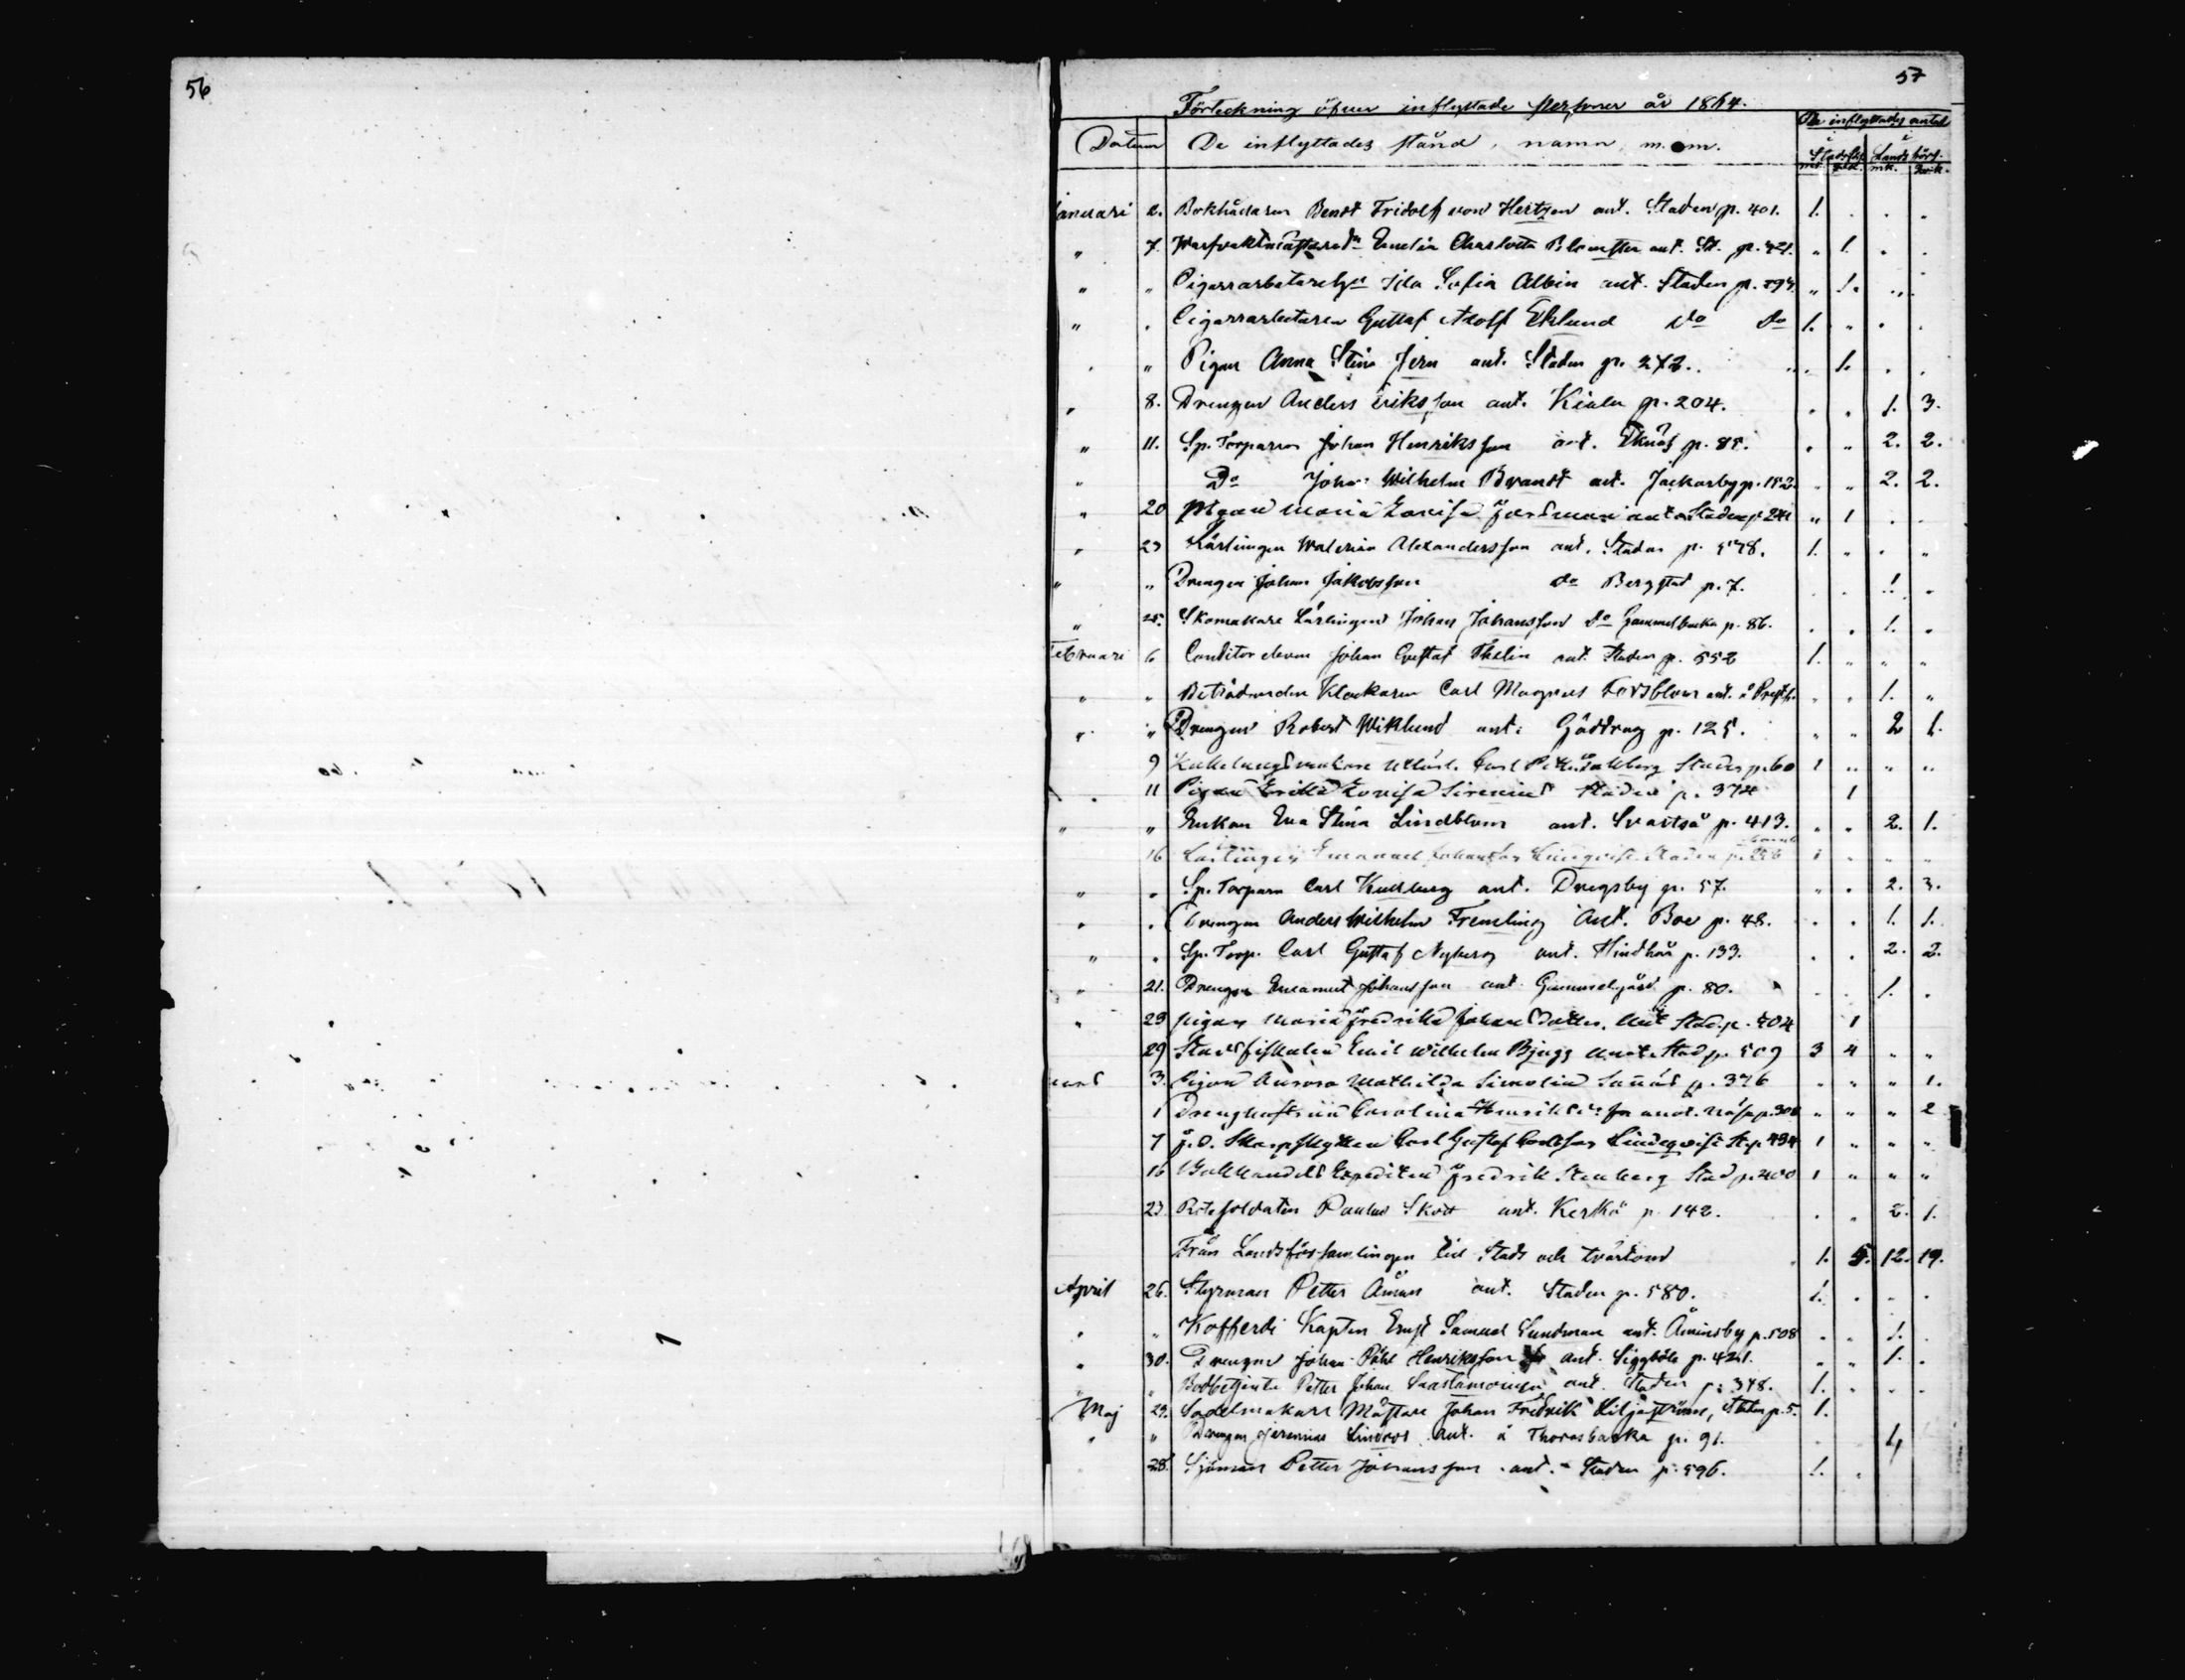 56
57
Förteckning öfver inflyttade personer år 1864.
De inflyttades antal
Datum De inflyttades stånd, namn m.m.
Stadsförs. Landsförs.
mk. qvk. mk. qvk.
Januari 2. Bokhållaren Bendt Fridolf von Hertzen ant. Staden p. 401. 1. . . .
" 7. Emelia Charlotta Blomster ant. St. p. 421. " 1. . .
" " Cigarrarbeterskan Ida Sofia Albin ant. Staden p. 594. " 1. "
" . Cigarrarbetaren Gustaf Adolf Eklund do do 1. " . .
. " Pigan Anna Stina Jern ant. Staden p. 272. . 1. . .
" 8. Drengen Anders Eriksson ant. Kiala p. 204. . . 1. 3.
" 11. Sp. Torparen Johan Henriksson ant. Eknäs p. 85. . " 2. 2.
" Do Johan Wilhelm Brandt ant. Jackarby p. 152. . " 2. 2.
" 20 Pigan Maria Lovisa Forsman ant. Staden p. 241 " 1 . .
" 23 Lärlingen Walerian Alexandersson ant. Staden p. 578. 1. " . "
" " Drengen Johan Jakobsson do Bergstad p. 7. . . 1. .
" 25. Skomakare Lärlingen Johan Johansson do Gammelbacka p. 86. . . 1. .
Februari 6 Conditor eleven Johan Gustaf Thelin ant. Staden p. 552 1. " " "
" " Biträdanden Klockaren Carl Magnus Forsblom ant. å Prestg. . . 1. "
" " Drengen Robert Wiklund ant. Gäddrag p. 125. " " 2 1.
9 Carl Petter Dahlberg Staden p. 60 1 " " "
. 11 Pigan Erika Lovisa Sirenius Staden p. 374 1
" " Enkan Eva Stina Lindblom ant. Svartså p. 413. " " 2. 1.
16 Lärlingen Emanuel Johansson Lindqvist Staden p. 256 1 . " "
" " Sp. Torparen Carl Kullberg ant. Drägsby p. 57. " . 2. 3.
" . Drengen Anders Wilhelm Fremling Ant. Boe p. 48. . . 1. 1.
" . Sp. Torp. Carl Gustaf Nyberg ant. Hindhår p. 133. . . 2. 2.
" 21. Drengen Emanuel Johansson ant. Gammelgård p. 80. . . 1. .
" 23 Pigan Maria Fredrika Johansdotter, Ant. Stad. p. 404 1
29 Stadsfiskalen Emil Wilhelm Bjugg Ant. Stad p. 509 3 4 " "
Mars 3. Pigan Aurora Mathilda Simolin Sannäs p. 376 " " " 1.
1 Drenghustrun Carolina ant. p. 301 " " " 2
7 F. d. Skarpskytten Carl Gustaf Carlsson Lindeqvist St. p. 434 1 " " "
16 Bokhandels Expediten Fredrik Stenberg Stad p. 400 1 " " "
23. Rotesoldaten Paulus Skott ant. Kerkö p. 142. . " 2. 1.
Från Landsförsamlingen till Stads och tvärtom . 1. 5. 12. 19.
April 26. Styrman Petter Åman ant. Staden p. 580. 1. . . .
. " Kofferdi Kapten Ernst Samuel Sundman ant. Åminsby p. 508 . " 1. .
" 30. Drengen Johan Henriksson ant. Siggböle p. 421. " " 1. .
" Bodbetjente Petter Johan Saastamoinen ant. Staden p. 348. 1. . . .
Maj 23. Sadelmakare Mästare Johan Fredrik Liljeström, Staden p. 5. 1.
" " Drengen Jeremias Lindros Ant. å Thorasbacka p. 91. . 1,
28. Sjöman Petter Johansson ant. Staden p. 596. 1. .